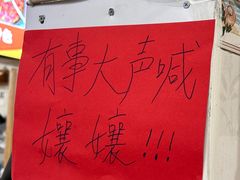 有事大声喊
孃孃!!!